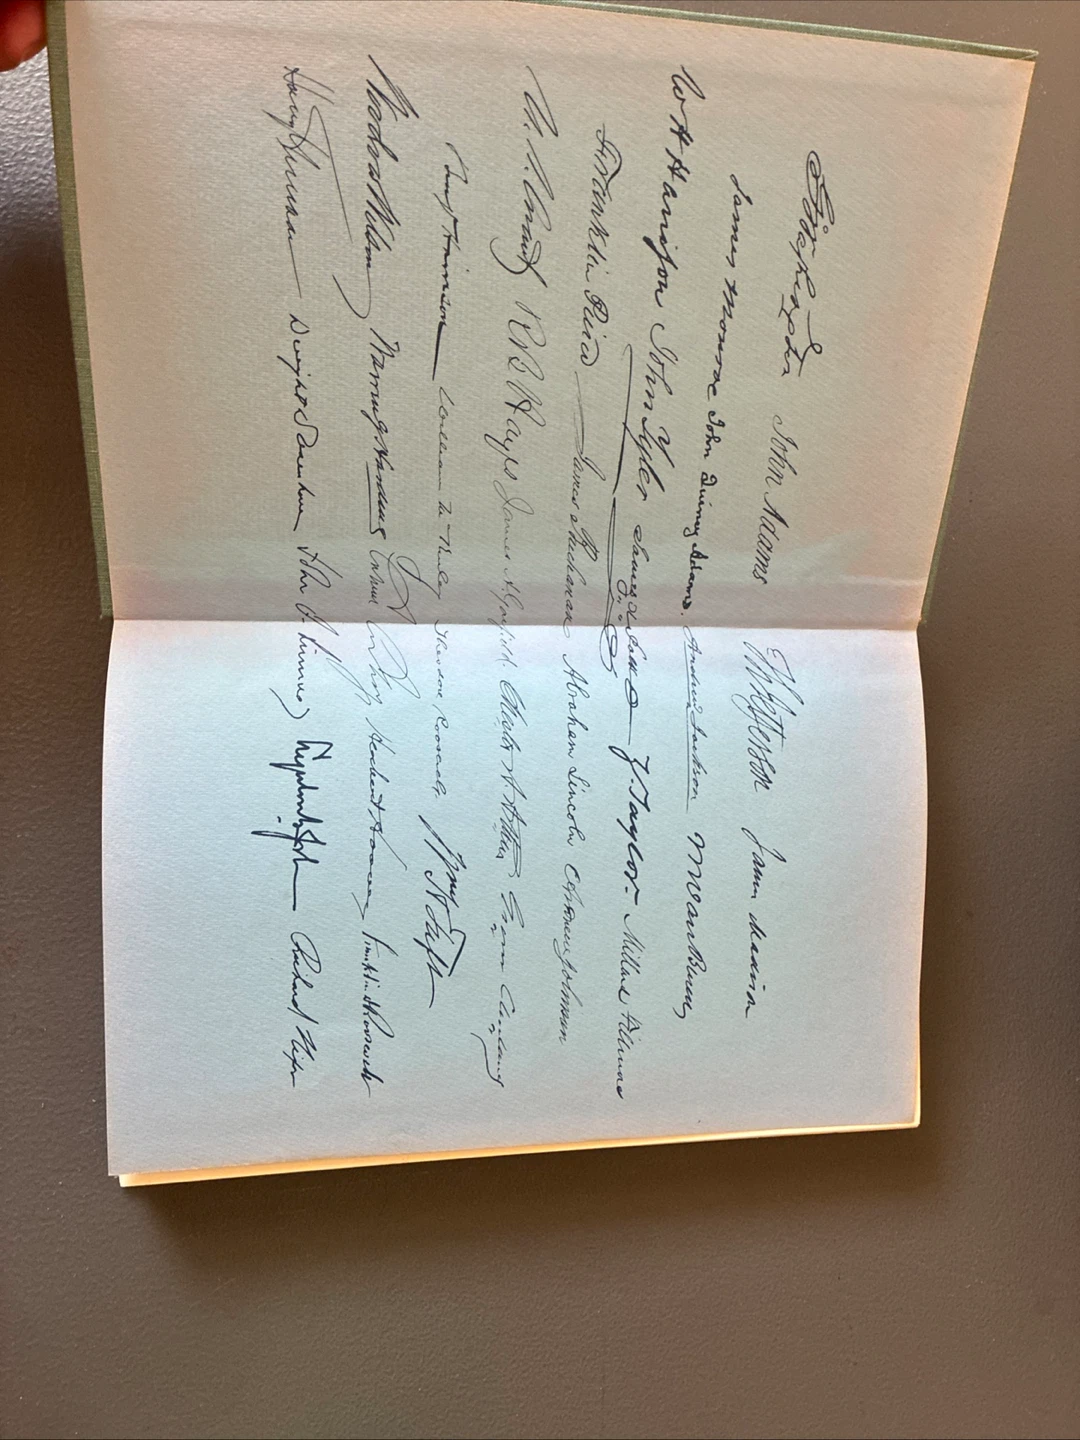 G Washington John Adams Th Jefferson James Madison
James Monroe John Quincy Adams. Andrew Jackson M Van Buren
W H Harrison John Tyler James K. Polk Z. Taylor. Millard Fillmore
Franklin Pierce James Buchanan Abraham Lincoln Andrew Johnson
U. S. Grant R B Hayes James A Garfield Chester A Arthur Grover Cleveland
Benj Harrison William McKinley Theodore Roosevelt Wm H Taft
Woodrow Wilson Warren G Harding Calvin Coolidge Herbert Hoover Franklin D Roosevelt
Harry S Truman Dwight D Eisenhower John F. Kennedy Lyndon B. Johnson Richard Nixon